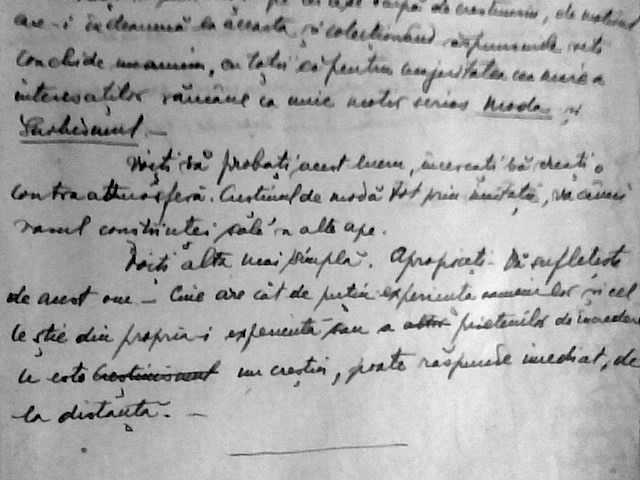 pe cei de creștinism, de motivul
care-i îndeamnă la aceasta și colecționând răspunsurile veți
conchide unanim, cu toții că pentru majoritatea cea mare a
interesaților rămâne ca unic motor serios Moda și
Snobismul. —
Voiți să probați acest lucru, încercați să creați o
contraatmosferă. Creștinul de modă tot prin imitație, va căuta
vasul conștiinței sale 'n alte ape.
Voiți alta mai simplă. Apropieți-Vă sufletește
de acest om — Cine are cât de puțin experiența oamenilor și cel
ce știe din propria-i experiență sau a altor prietenilor de încredere
ce este Creștinismul un creștin, poate răspunde imediat, de
la distanță. —